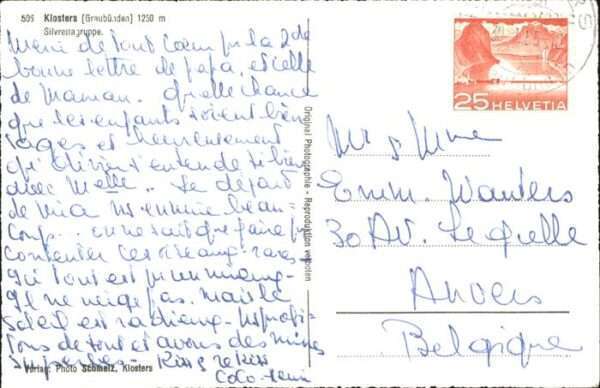 509 Klosters (Graubünden) 1250 m
Silvrettagruppe.
Merci de tout cœur pr la 2de
bonne lettre de papa, et celle
de Maman. Quelle chance
que les enfants soient bien
sages et heureusement
qu'Olivier s'entende si bien
avec Melle.. Le départ
de ns ennuie beau=
coup.. on ne sait que faire pr
contenter ces oiseaux-rares-
ici tout est
Il ne neige pas. Mais le
soleil est radieux- ns profi
tons de tout et avons des mines
superbes- Kiss
Coco-
Verlag: Photo Schmelz, Klosters
Original Photographie - Reproduktion verboten
25 HELVETIA
Mr & Mme
Emm. Wauters
30 AV. Le grelle
Anvers
Belgique